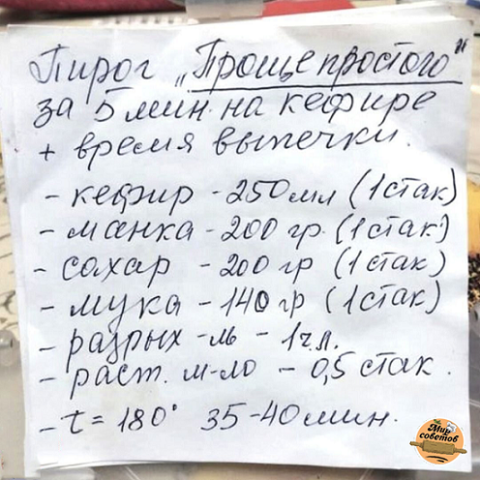 Пирог „Проще простого"
за 5 мин. на кефире
+ время выпечки.
- кефир - 250 мл (1 стак)
- манка - 200 гр. (1 стак)
- сахар - 200 гр (1 стак)
- мука - 140 гр (1 стак)
- разрых-ль - 1 ч.л.
- раст. м-ло - 0,5 стак.
- t = 180° 35-40 мин.
Мир
советов